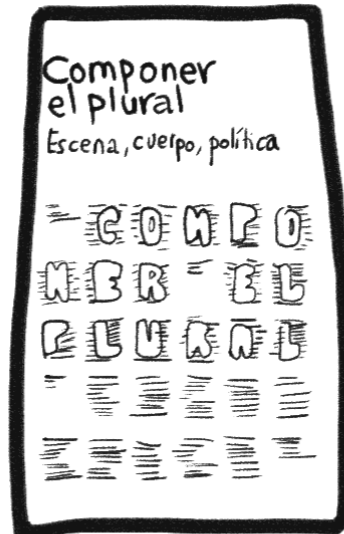 Componer
el plural
Escena, cuerpo, política
COMPO
NER EL
PLURAL